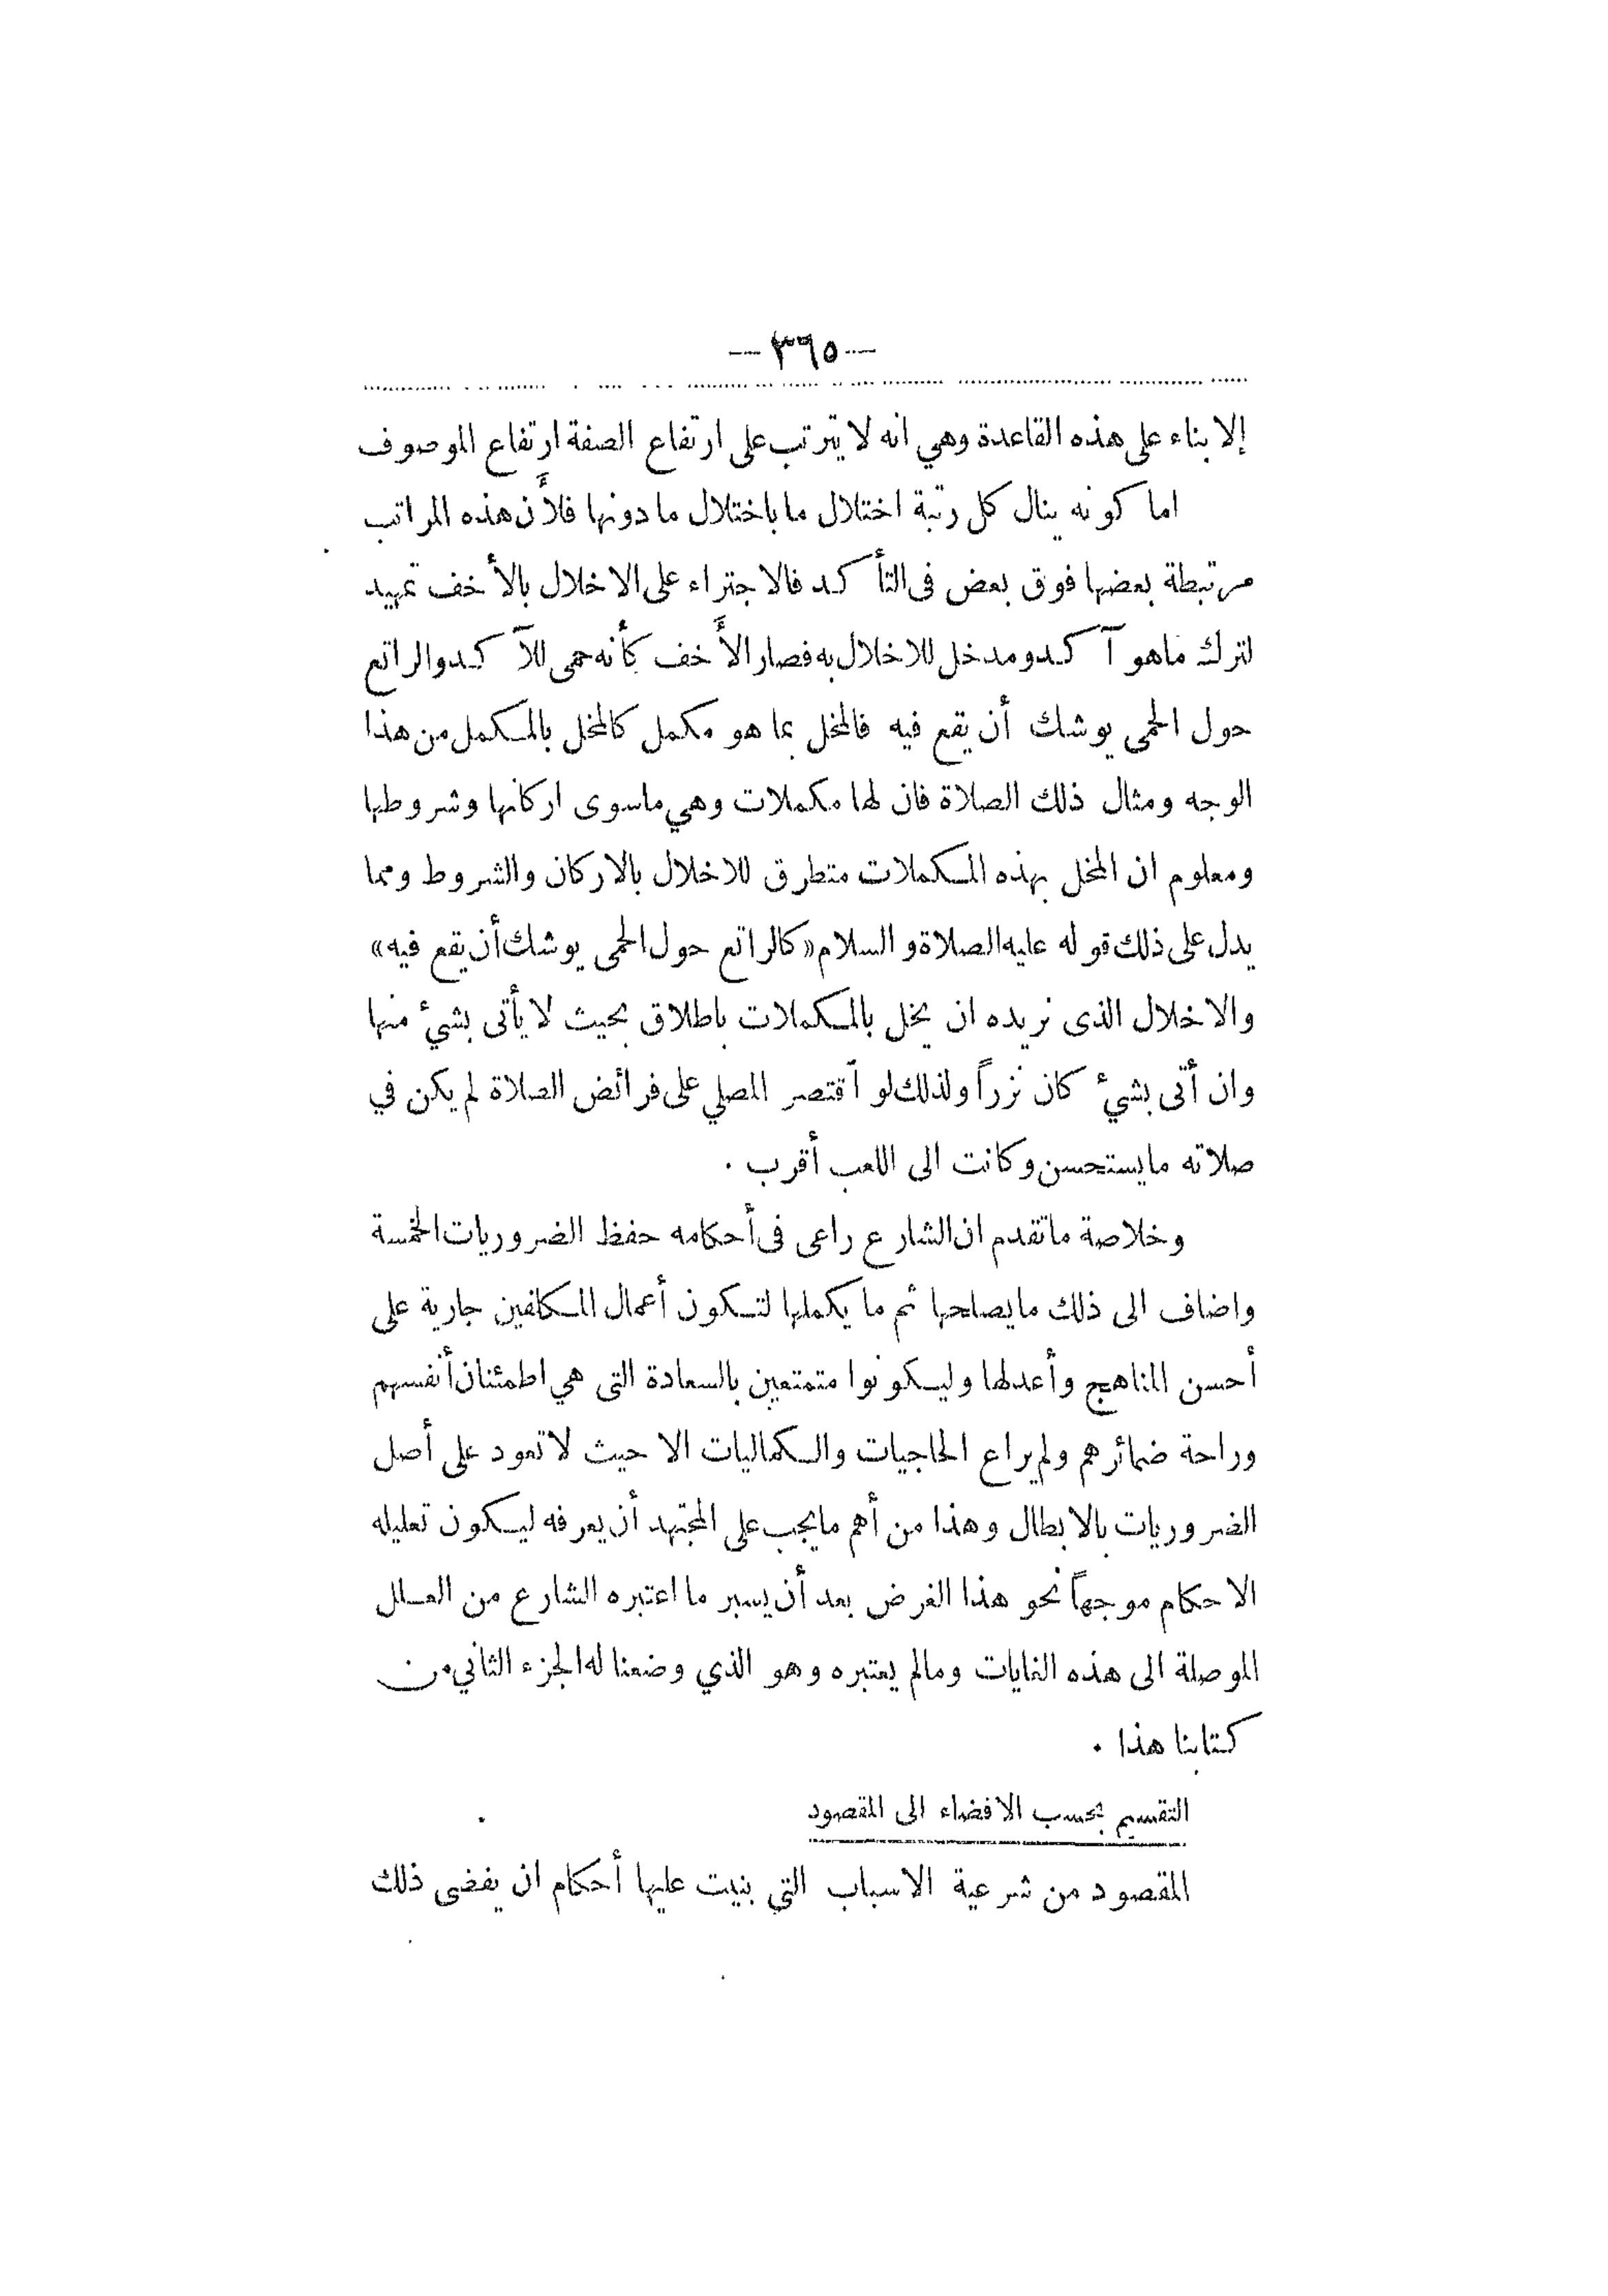 — ٣٦٥ —
إلا بناء على هذه القاعدة وهي انه لا يترتب على ارتفاع الصفة ارتفاع الموصوف
اما كونه ينال كل رتبة اختلال ما باختلال ما دونها فلأن هذه المراتب
مرتبطة بعضها فوق بعض فى التأكد فالاجتراء على الاخلال بالأخف تمهيد
لترك ماهو آكد ومدخل للاخلال به فصار الأخف كأنه حمى للآكد والراتع
حول الحمى يوشك أن يقع فيه فالمخل بما هو مكمل كالمخل بالمكمل من هذا
الوجه ومثال ذلك الصلاة فان لها مكملات وهي ماسوى اركانها وشروطها
ومعلوم ان المخل بهذه المكملات متطرق للاخلال بالاركان والشروط ومما
يدل على ذلك قوله عليه الصلاة والسلام «كالراتع حول الحمى يوشك أن يقع فيه»
والاخلال الذى نريده ان يخل بالمكملات باطلاق بحيث لا يأتى بشيء منها
وان أتى بشيء كان نزراً ولذلك لو اقتصر المصلي على فرائض الصلاة لم يكن في
صلاته مايستحسن وكانت الى اللعب أقرب .
وخلاصة ماتقدم ان الشارع راعى فى أحكامه حفظ الضروريات الخمسة
واضاف الى ذلك مايصلحها ثم ما يكملها لتكون أعمال المكلفين جارية على
أحسن المناهج وأعدلها وليكونوا متمتعين بالسعادة التى هي اطمئنان أنفسهم
وراحة ضمائرهم ولم يراع الحاجيات والكماليات الا حيث لا تعود على أصل
الضروريات بالابطال وهذا من أهم مايجب على المجتهد أن يعرفه ليكون تعليله
الاحكام موجهاً نحو هذا الغرض بعد أن يسبر ما اعتبره الشارع من العلل
الموصلة الى هذه الغايات ومالم يعتبره وهو الذي وضعنا له الجزء الثاني من
كتابنا هذا .
التقسيم بحسب الافضاء الى المقصود
المقصود من شرعية الاسباب التي بنيت عليها أحكام ان يفضى ذلك